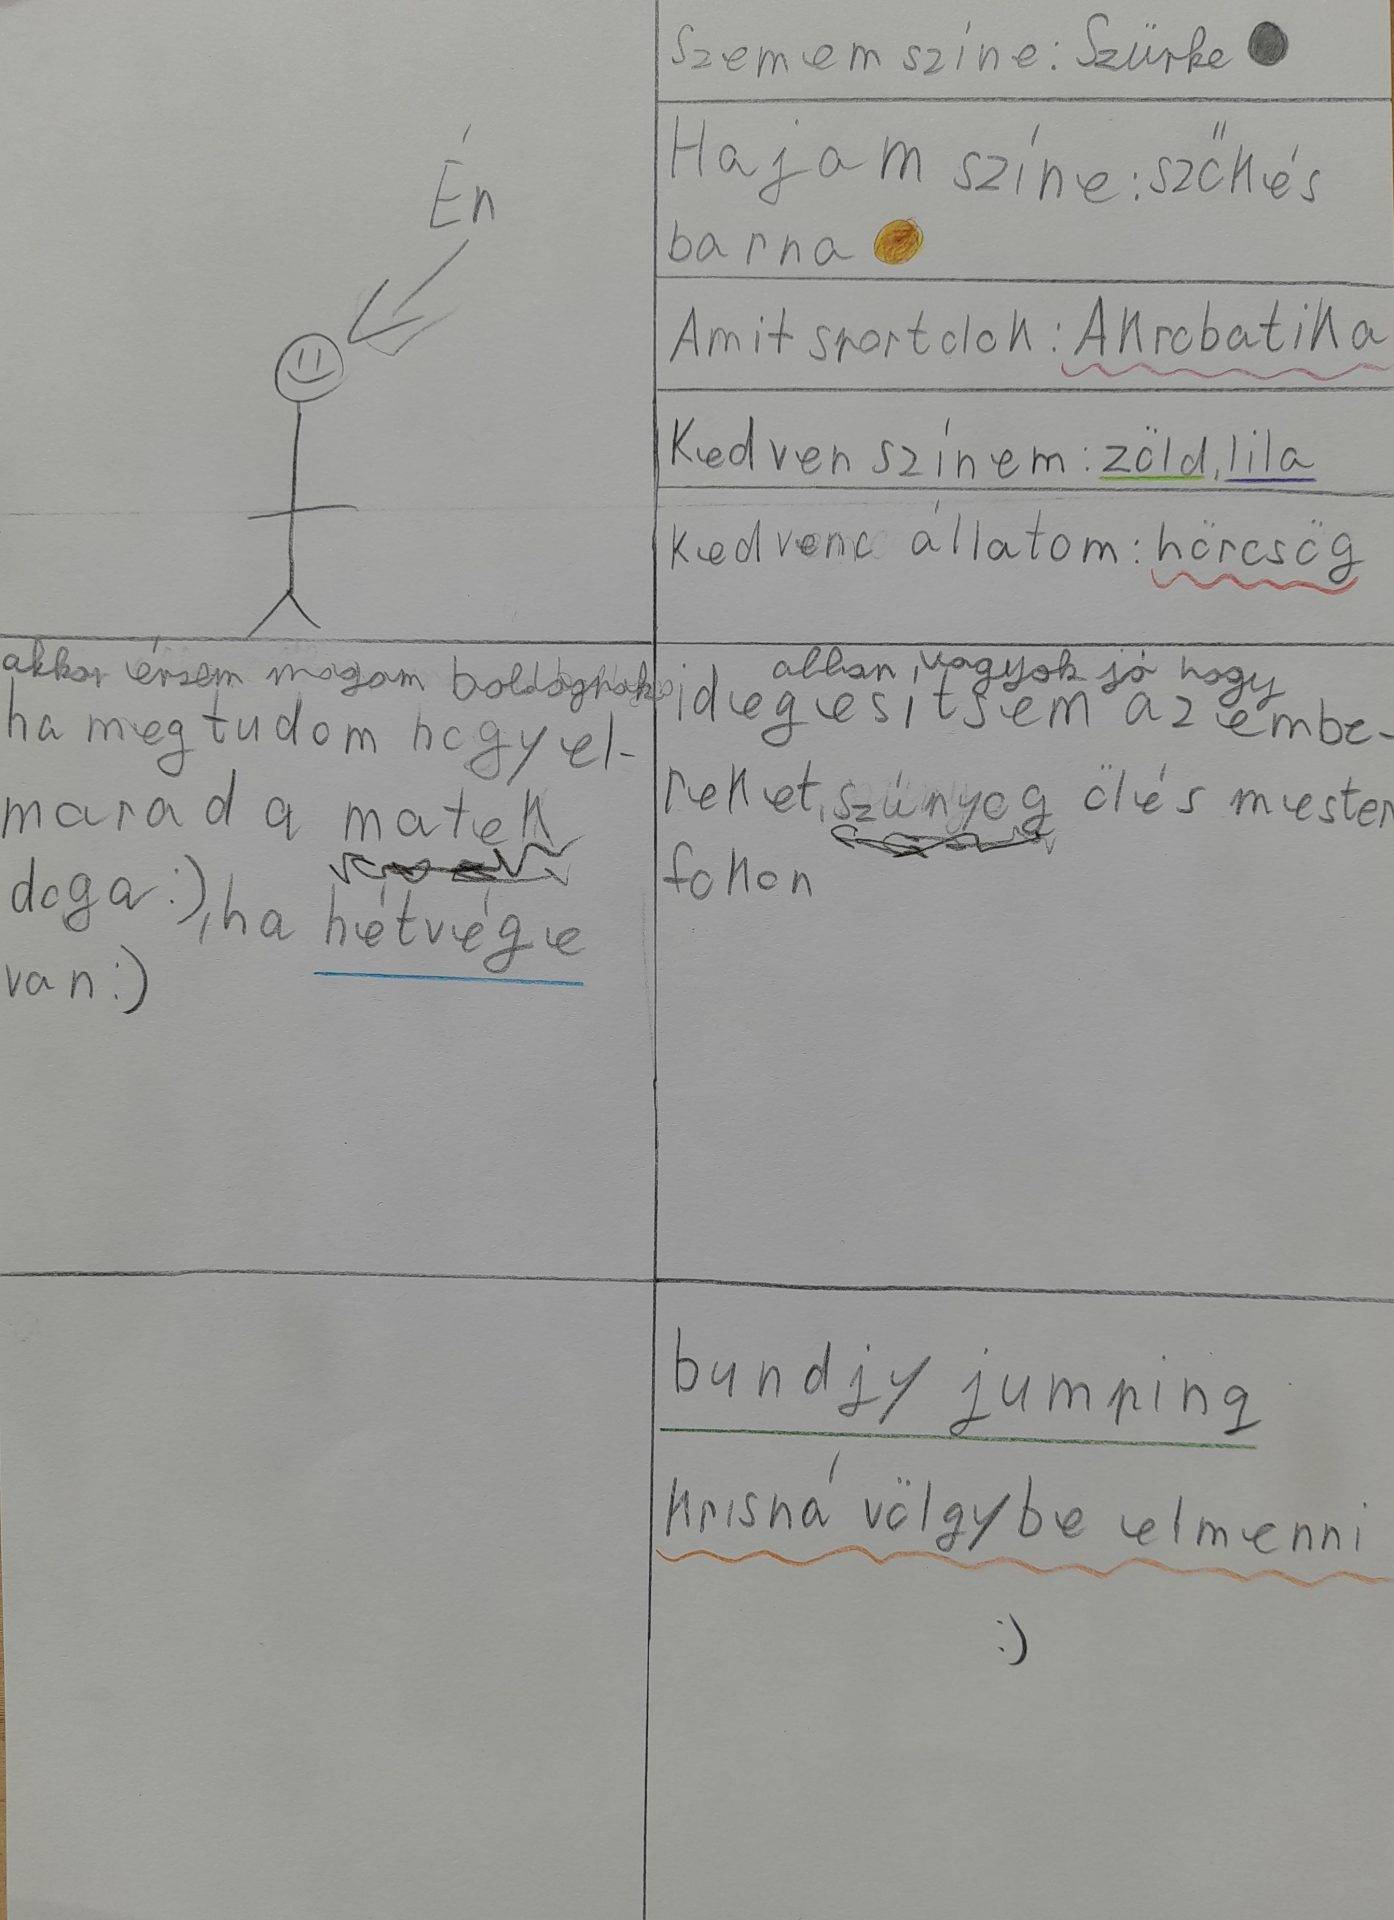 Én
Szemem színe: Szürke
Hajam színe: szőkés
barna
Amit sportolok: Akrobatika
Kedven színem: zöld, lila
Kedvenc állatom: hörcsög
akkor érzem magam boldognak
ha megtudom hogy el-
marad a matek
doga :), ha hétvége
van :)
abban vagyok jó hogy
idegesítsem az embe-
reket, szúnyog ölés mester
fokon
bundjy jumping
Krisná völgybe elmenni
:)